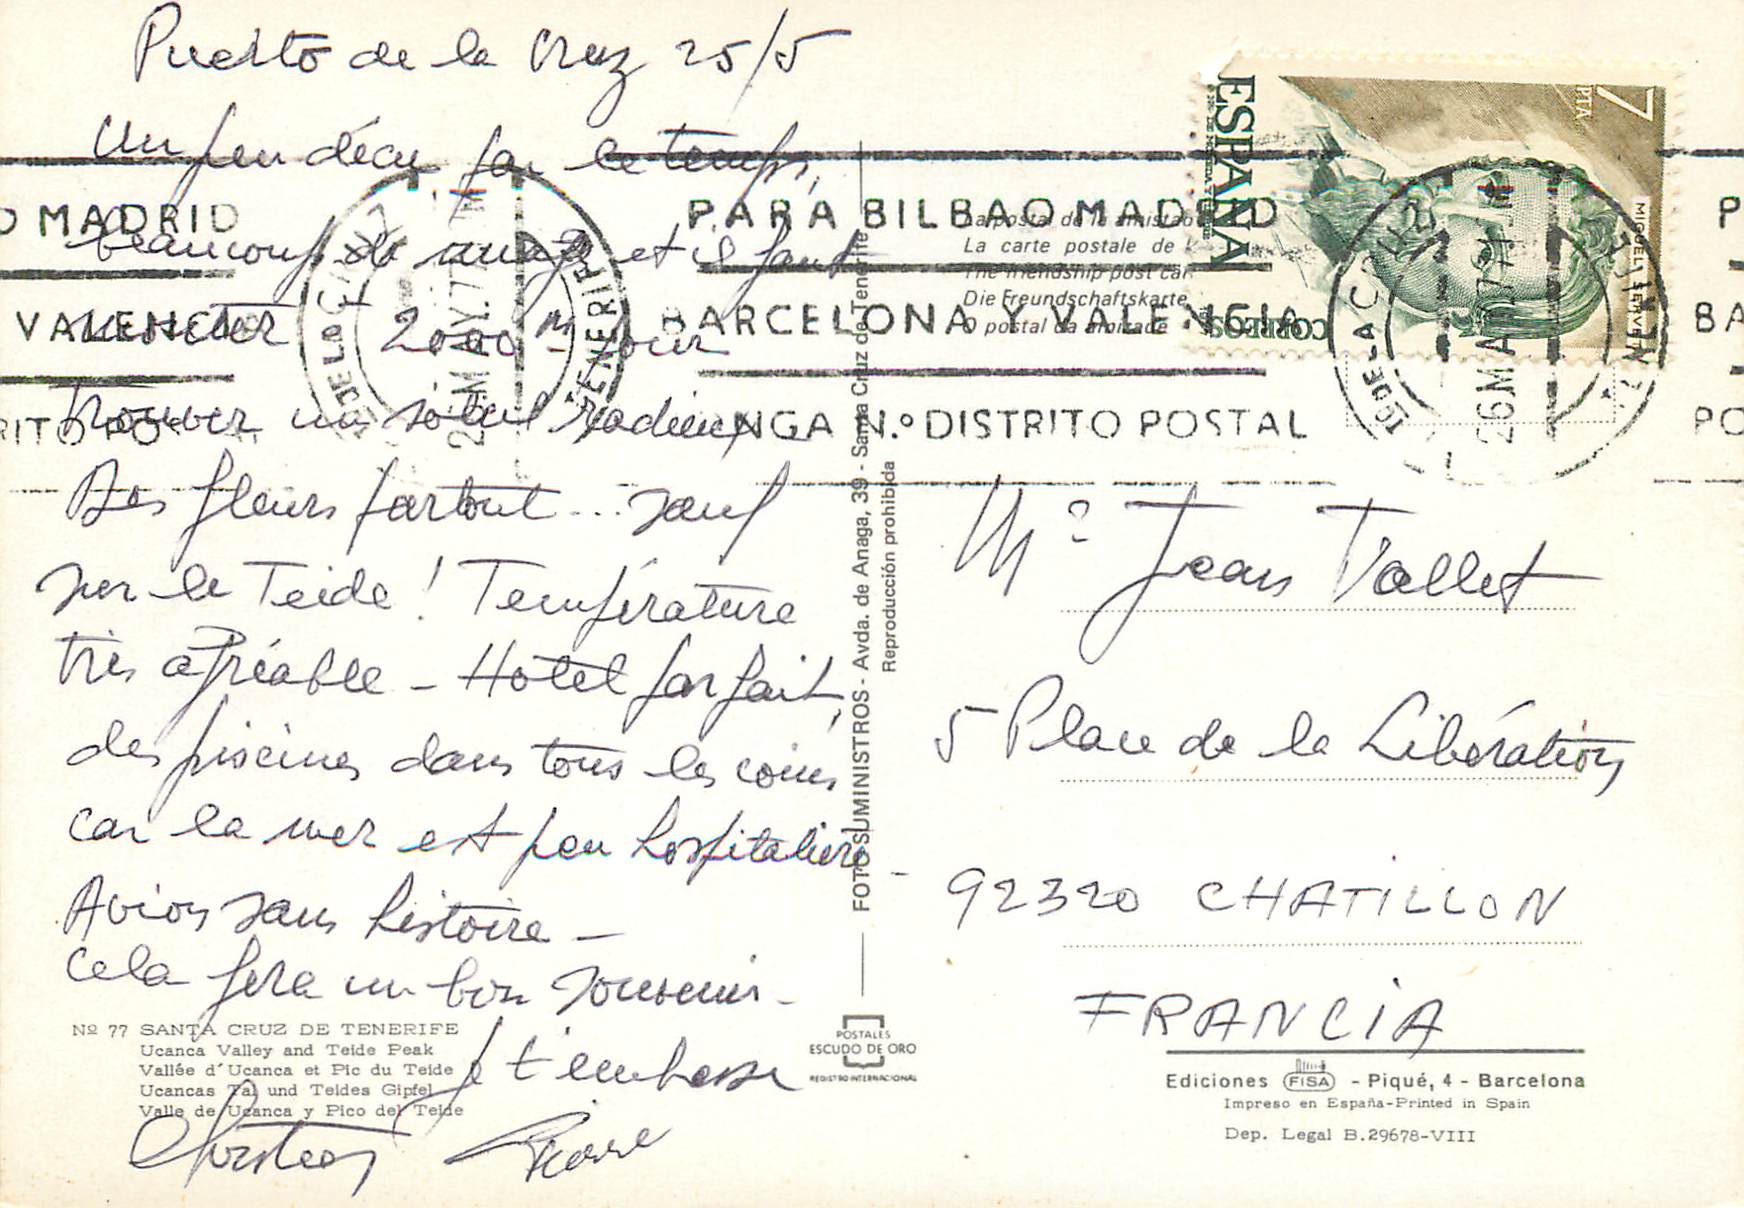 Puerto de la Cruz 25/5
Un peu déçu par le temps,
beaucoup de nuages et il faut
monter 2000 m pour
trouver un soleil radieux
Des fleurs partout... sauf
sur le Teide ! Température
très agréable - Hôtel parfait,
des piscines dans tous les coins
car la mer est peu hospitalière -
Avion sans histoire -
Cela fera un bon souvenir -
J t'embrasse
Christian Pierre
Nº 77 SANTA CRUZ DE TENERIFE
Ucanca Valley and Teide Peak
Vallée d'Ucanca et Pic du Teide
Ucancas Tal und Teides Gipfel
Valle de Ucanca y Pico del Teide
FOTO SUMINISTROS - Avda. de Anaga, 39 - Santa Cruz de Tenerife
Reproducción prohibida
POSTALES
ESCUDO DE ORO
REGISTRO INTERNACIONAL
ESPAÑA
CORREOS
7 PTA
MIGUEL SERVET
O MADRID
VALENCIA
RITO PO
PARA BILBAO MADRID
BARCELONA Y VALENCIA
NGA N.º DISTRITO POSTAL
P
BA
PO
TO DE LA CRUZ
TENERIFE
26 MAY. 77
La carte postale de l'
The friendship post car
Die Freundschaftskarte
O postal da amizade
Mº Jean Vallet
5 Place de la Libération
92320 CHATILLON
FRANCIA
Ediciones FISA - Piqué, 4 - Barcelona
Impreso en España-Printed in Spain
Dep. Legal B.29678-VIII